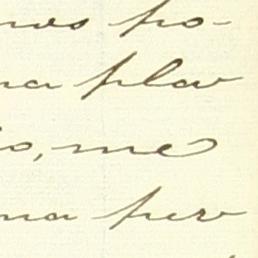 nos po-
na plav
io, me
ma per